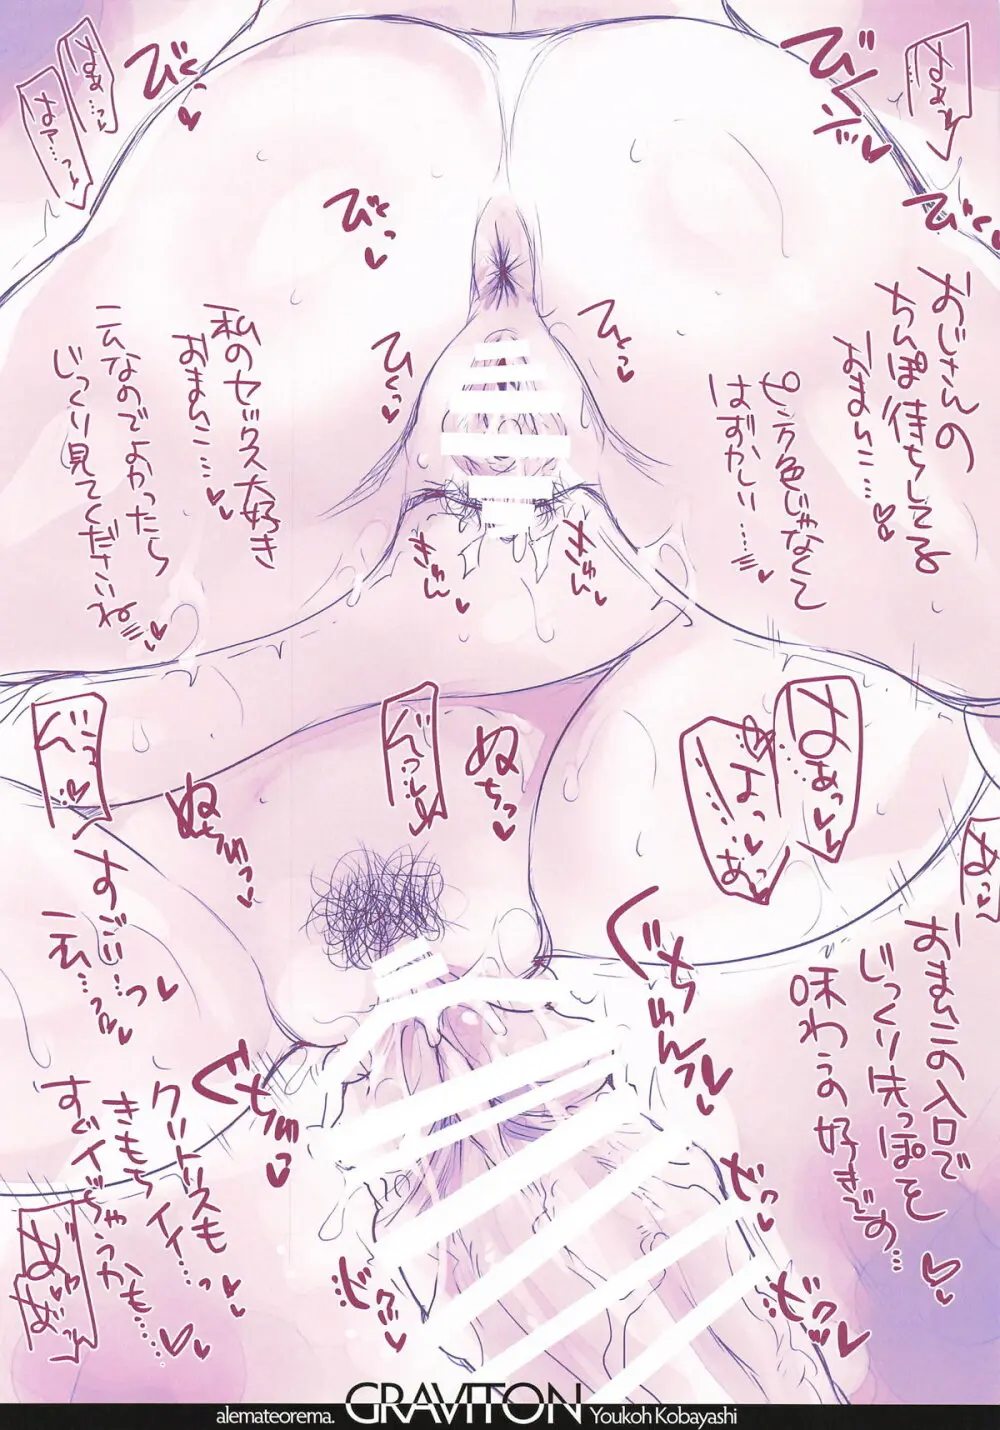 びくっ♥
はぁ…っ
はァ…っ
びくん♥
はぁっ
びくっ
びくっ♥
おじさんの
ちんぽ待ちしてる
おまんこ…♡♥
ピンク色じゃなくて
はずかしい…♥
ひくっ♥
ひくっ♥
私のセックス大好き
おまんこ…♥♥
こんなのでよかったら
じっくり見てくださいね♥
きゅん♥
きゅん♥
はぁっ♥
あっ
ぬちっ♥
ぬちゅっ♥
おまんこの入口で
じっくり先っぽを
味わうの好きです…♡♥
すごい…っ♥
私…っ♥
ぐぢゅんっ♥
ぐぢゅっ♥
クリトリスも
きもちイイ…っ♥
すぐイッちゃうかも…♥♥
alemateorema.
GRAVITON
Youkoh Kobayashi